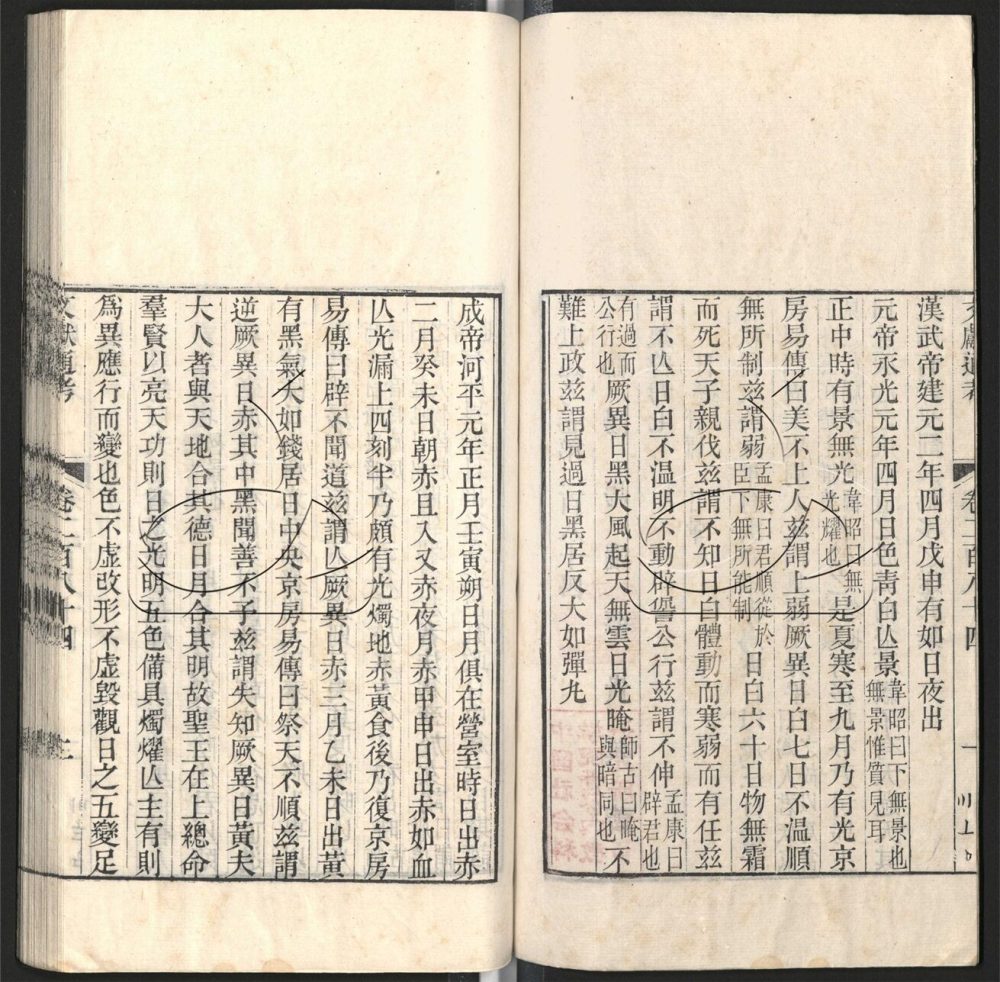 文獻通考 卷二百八十四
漢武帝建元二年四月戊申有如日夜出
元帝永光元年四月日色青白亾景韋昭曰下無景也無景惟質見耳
正中時有景無光韋昭曰無光耀也是夏寒至九月乃有光京
房易傳曰美不上人茲謂上弱厥異日白七日不溫順
無所制茲謂弱孟康曰君順從於臣下無所能制日白六十日物無霜
而死天子親伐茲謂不知日白體動而寒弱而有任茲
謂不亾日白不溫明不動辟𠎝公行茲謂不伸孟康曰辟君也
有過而公行也厥異日黑大風起天無雲日光晻師古曰晻與暗同也不
難上政茲謂見過日黑居仄大如彈丸
成帝河平元年正月壬寅朔日月俱在營室時日出赤
二月癸未日朝赤且入又赤夜月赤甲申日出赤如血
亾光漏上四刻半乃頗有光燭地赤黃食後乃復京房
易傳曰辟不聞道茲謂亾厥異日赤三月乙未日出黃
有黑氣大如錢居日中央京房易傳曰祭天不順茲謂
逆厥異日赤其中黑聞善不予茲謂失知厥異日黃夫
大人者與天地合其德日月合其明故聖王在上總命
羣賢以亮天功則日之光明五色備具燭燿亾主有則
爲異應行而變也色不虛改形不虛毀觀日之五變足
文獻通考 卷二百八十四